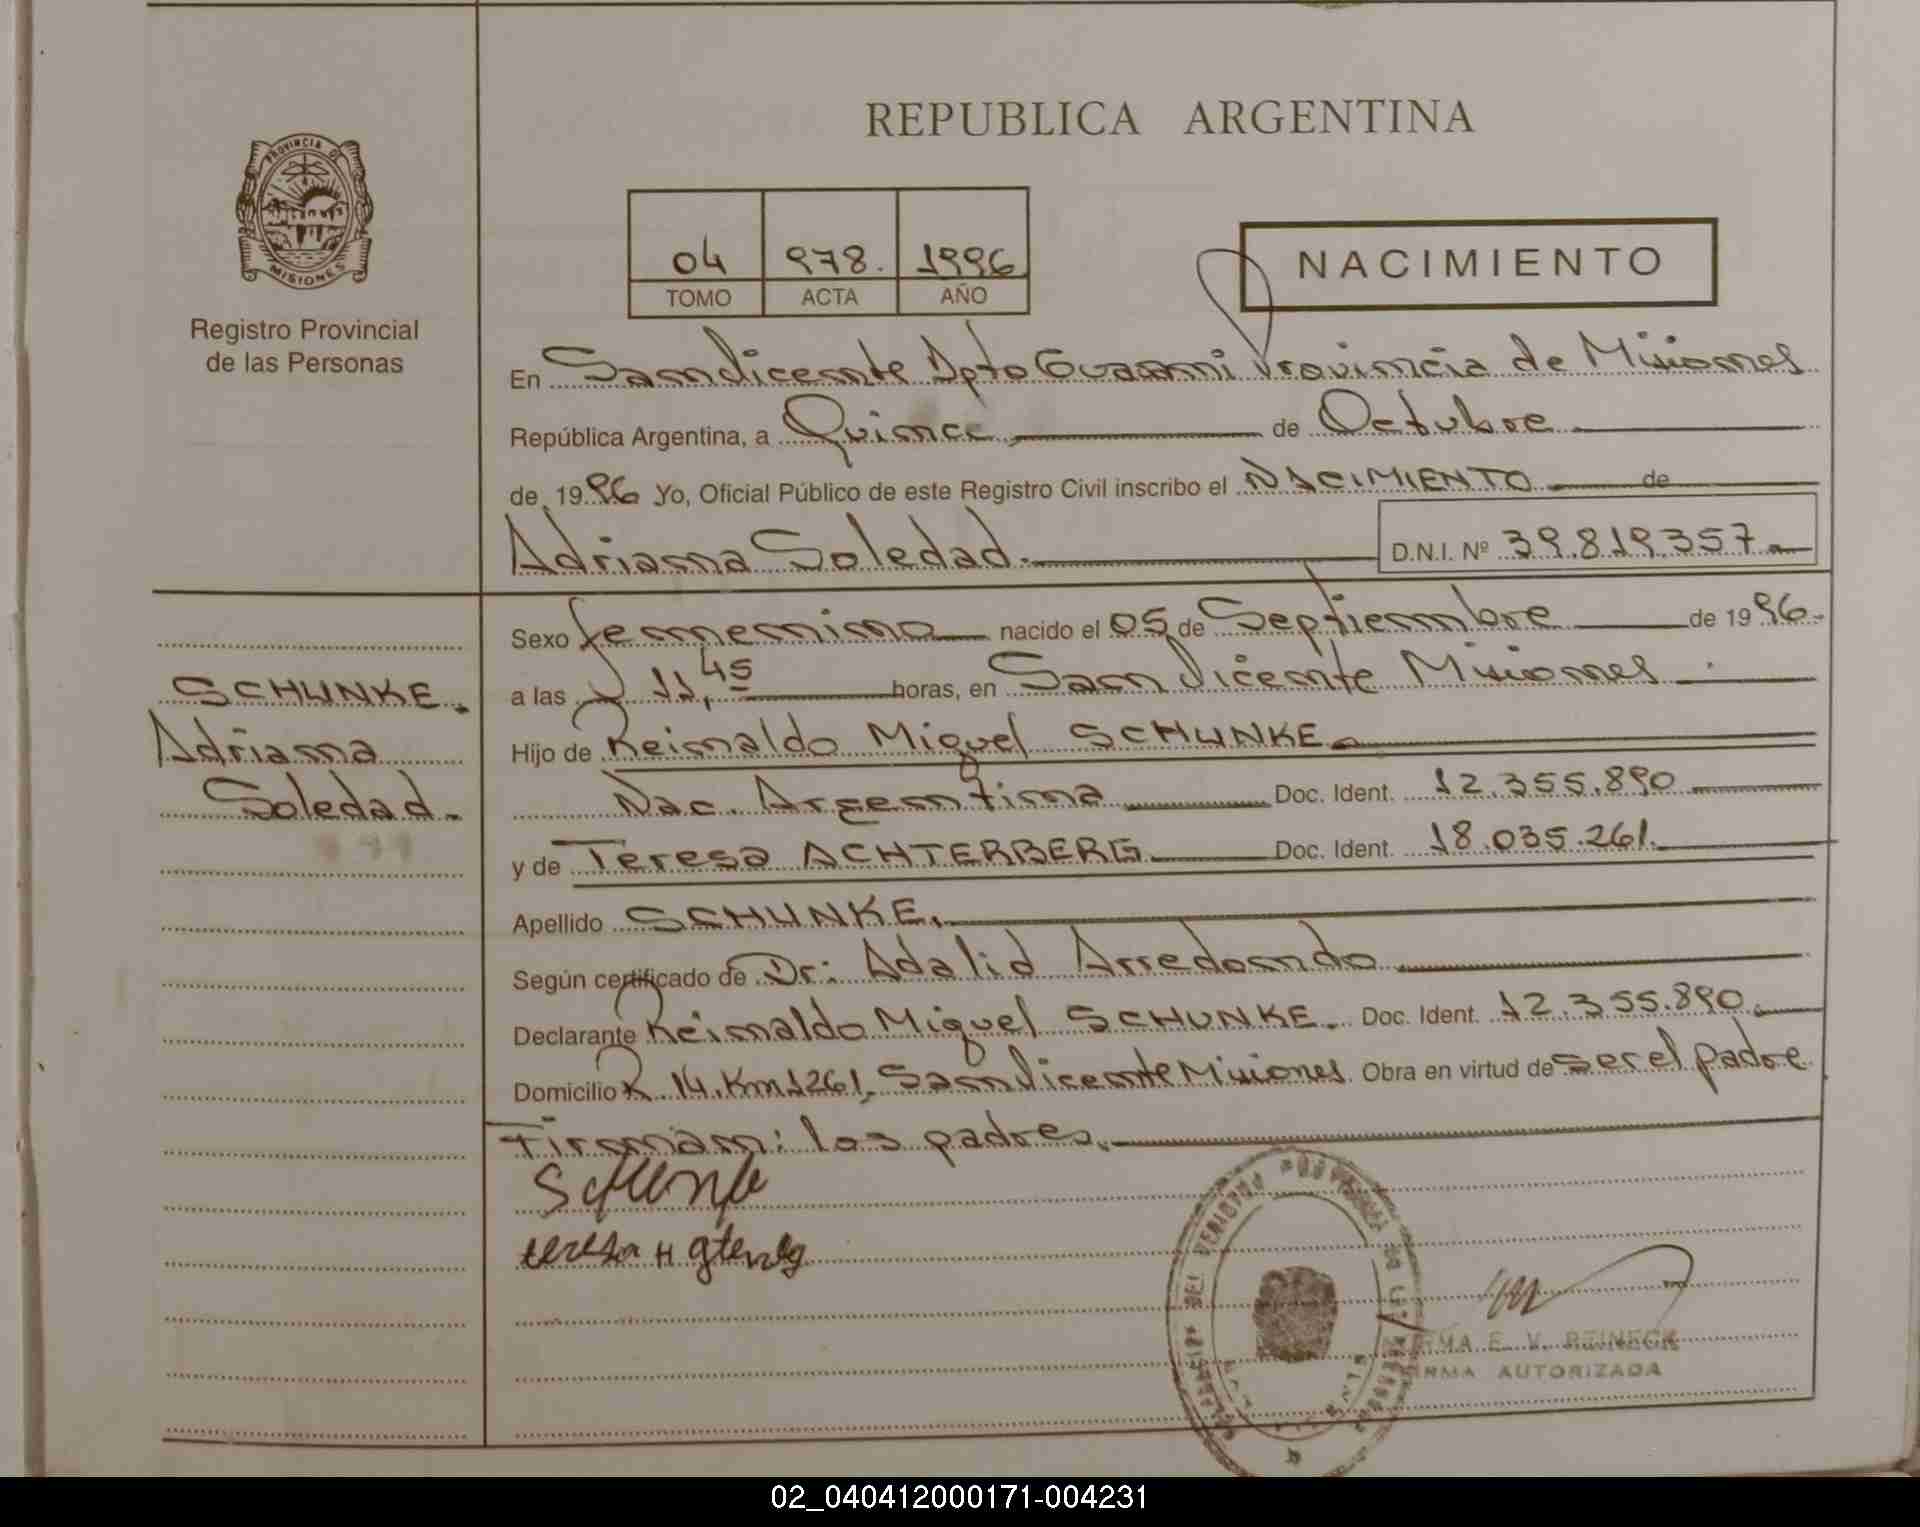 REPUBLICA ARGENTINA
PROVINCIA DE
MISIONES
Registro Provincial
de las Personas
04 978. 1996
TOMO ACTA AÑO
NACIMIENTO
En San Vicente Dpto Guarani Provincia de Misiones
República Argentina, a Quince de Octubre
de 1996 Yo, Oficial Público de este Registro Civil inscribo el NACIMIENTO de
Adriana Soledad. D.N.I. Nº 39.819.357
SCHUNKE.
Adriana
Soledad.
Sexo femenino nacido el 05 de Septiembre de 1996.
a las 11,45 horas, en San Vicente Misiones
Hijo de Reinaldo Miguel SCHUNKE
Nac. Argentina Doc. Ident. 12.355.890
y de Teresa ACHTERBERG Doc. Ident. 18.035.261.
Apellido SCHUNKE.
Según certificado de Dr: Adalid Arredondo
Declarante Reinaldo Miguel SCHUNKE. Doc. Ident. 12.355.890.
Domicilio R.14. Km 1261, San Vicente Misiones. Obra en virtud de ser el padre
Firman: los padres.
teresa H
E. V. REINECK
AUTORIZADA
02_040412000171-004231